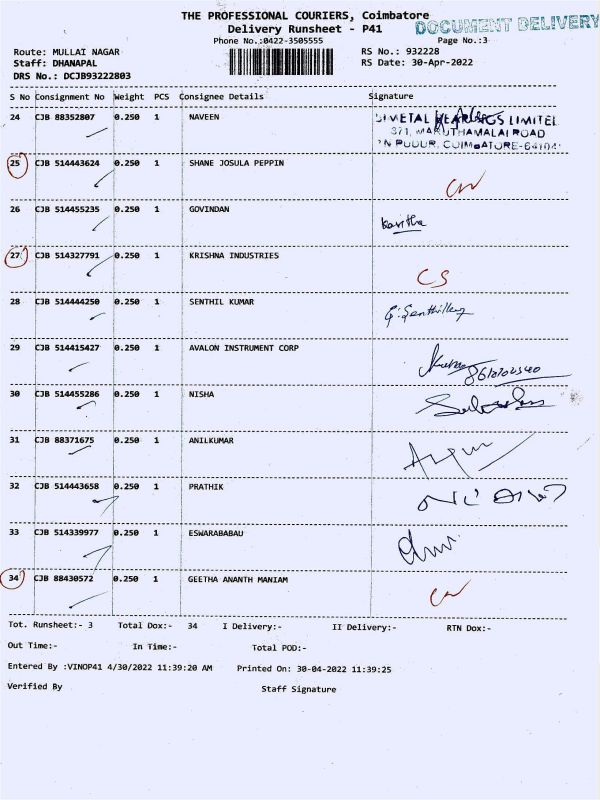 THE PROFESSIONAL COURIERS, Coimbatore
DOCUMENT DELIVERY
Delivery Runsheet - P41
Phone No.:0422-3505555 Page No.:3
Route: MULLAI NAGAR RS No.: 932228
Staff: DHANAPAL RS Date: 30-Apr-2022
DRS No.: DCJB93222803
S No Consignment No Weight PCS Consignee Details Signature
24 CJB 88352807 0.250 1 NAVEEN
371, MARUTHAMALAI ROAD
25 CJB 514443624 0.250 1 SHANE JOSULA PEPPIN
26 CJB 514455235 0.250 1 GOVINDAN Kavitha
27 CJB 514327791 0.250 1 KRISHNA INDUSTRIES CS
28 CJB 514444250 0.250 1 SENTHIL KUMAR
29 CJB 514415427 0.250 1 AVALON INSTRUMENT CORP
30 CJB 514455286 0.250 1 NISHA
31 CJB 88371675 0.250 1 ANILKUMAR
32 CJB 514443658 0.250 1 PRATHIK
33 CJB 514339977 0.250 1 ESWARABABAU
34 CJB 88430572 0.250 1 GEETHA ANANTH MANIAM
Tot. Runsheet:- 3 Total Dox:- 34 I Delivery:- II Delivery:- RTN Dox:-
Out Time:- In Time:- Total POD:-
Entered By :VINOP41 4/30/2022 11:39:20 AM Printed On: 30-04-2022 11:39:25
Verified By Staff Signature